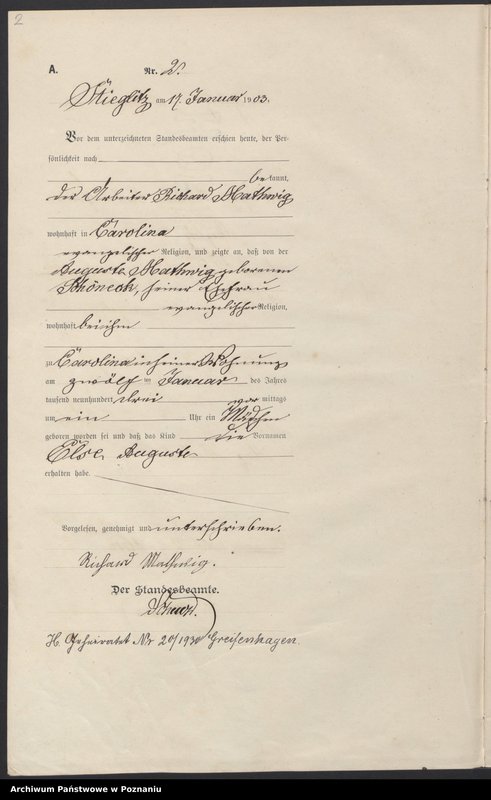 2
A.
Nr. 2.
Stieglitz am 17. Januar 1903.
Vor dem unterzeichneten Standesbeamten erschien heute, der Per-
sönlichkeit nach
bekannt,
der Arbeiter Richard Mathwig
wohnhaft in Carolina
evangelischer Religion, und zeigte an, daß von der
Auguste Mathwig geborenen
Schöneck, seiner Ehefrau
evangelischer Religion,
wohnhaft bei ihm
zu Carolina in seiner Wohnung
am zwölf ten Januar des Jahres
tausend neunhundert drei vor mittags
um ein Uhr ein Mädchen
geboren worden sei und daß das Kind die Vornamen
Else Auguste
erhalten habe.
Vorgelesen, genehmigt und unterschrieben.
Richard Mathwig.
Der Standesbeamte.
H. Geheiratet Nr 20/1930 Greifenhagen.
Archiwum Państwowe w Poznaniu